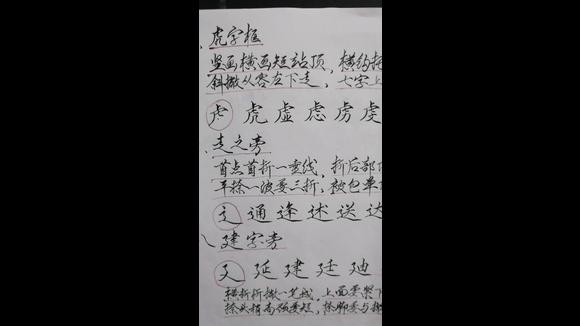 虎字框
竖画横画短站顶，横钩托
斜撇从容左下走，七字上
虍 虎 虚 虑 虏 虔
走之旁
首点首折一垂线，折后部
平捺一波要三折，被包单
辶 通 逢 述 送 达
建字旁
廴 延 建 廷 廸
横折折撇一笔线，上面要紧下
捺头稍高强要短，捺脚要与